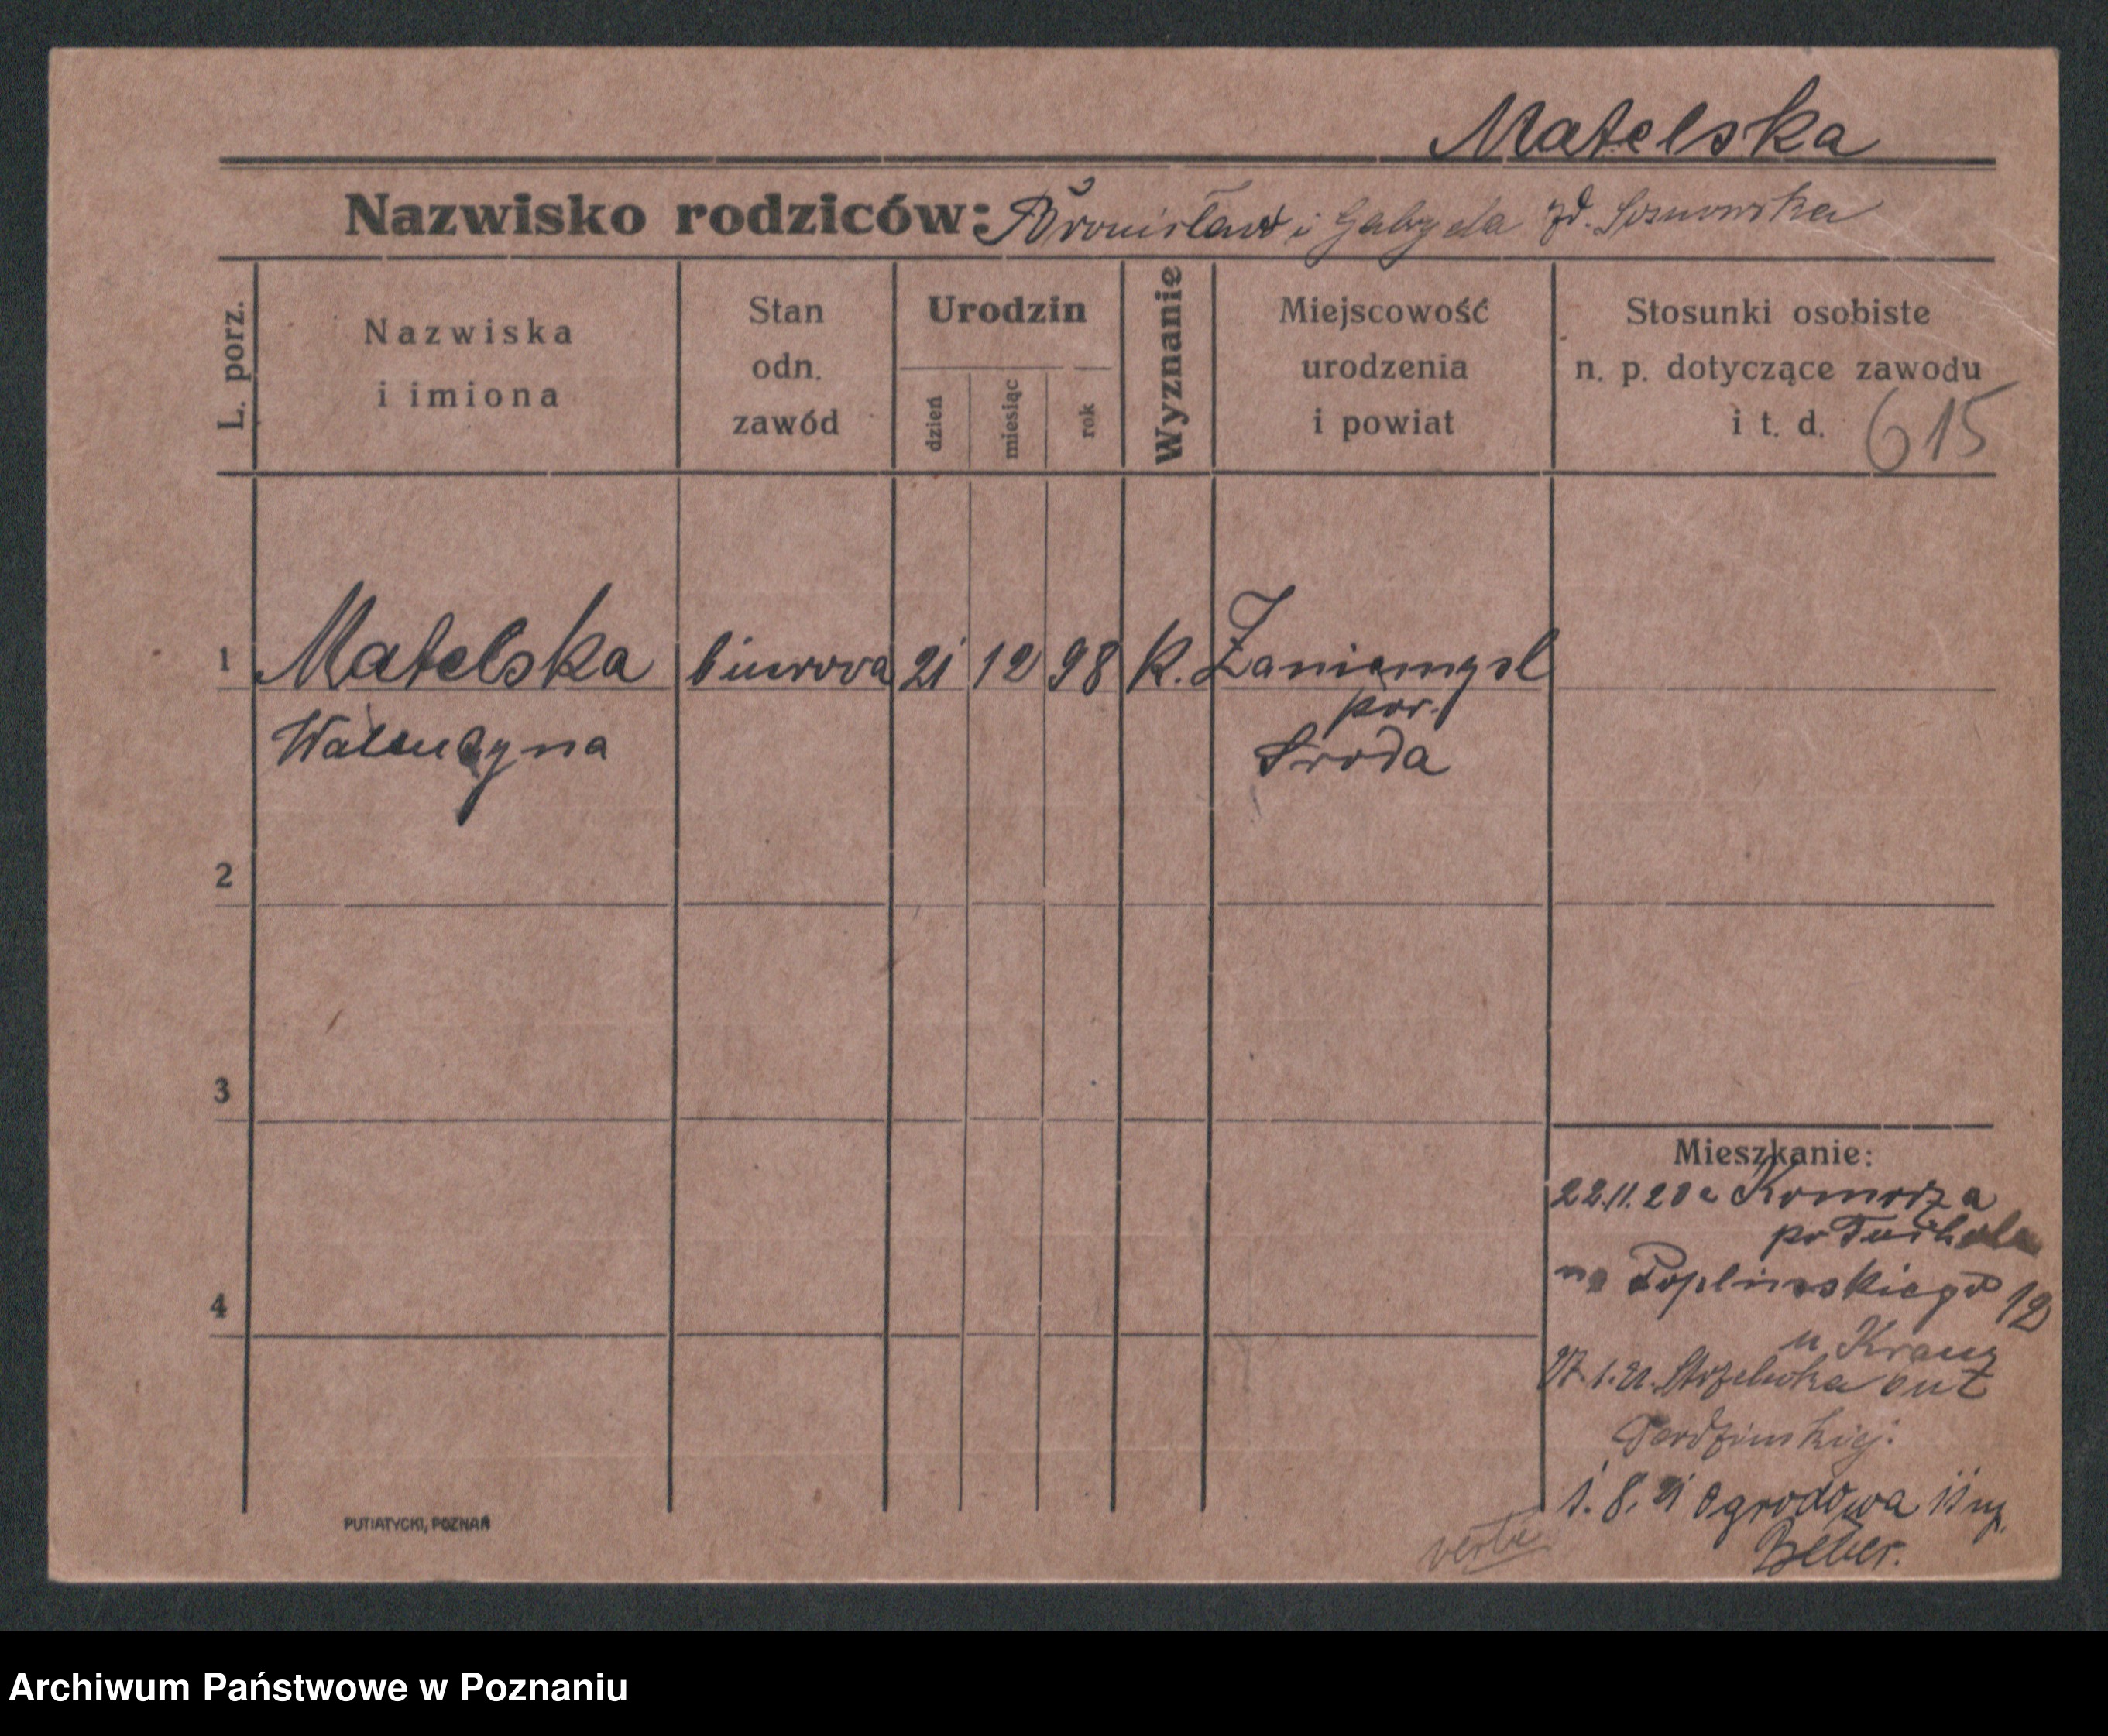 Matelska
Nazwisko rodziców: Bronisław i Gabryela zd. Sosnowska
L. porz.
Nazwiska
i imiona
Stan
odn.
zawód
Urodzin
dzień
miesiąc
rok
Wyznanie
Miejscowość
urodzenia
i powiat
Stosunki osobiste
n. p. dotyczące zawodu
i t. d. 615
1 Matelska biurowa 21 12 98 k. Zaniemysl
pow.
Sroda
Walencyna
2
3
4
Mieszkanie:
22.11.20 Komorza
Tuchola
na Poplinskiego 12
u Kranz
27.1.21. Strzelecka
1.8.21 Ogrodowa 11
verte
PUTIATYCKI, POZNAŃ
Archiwum Państwowe w Poznaniu